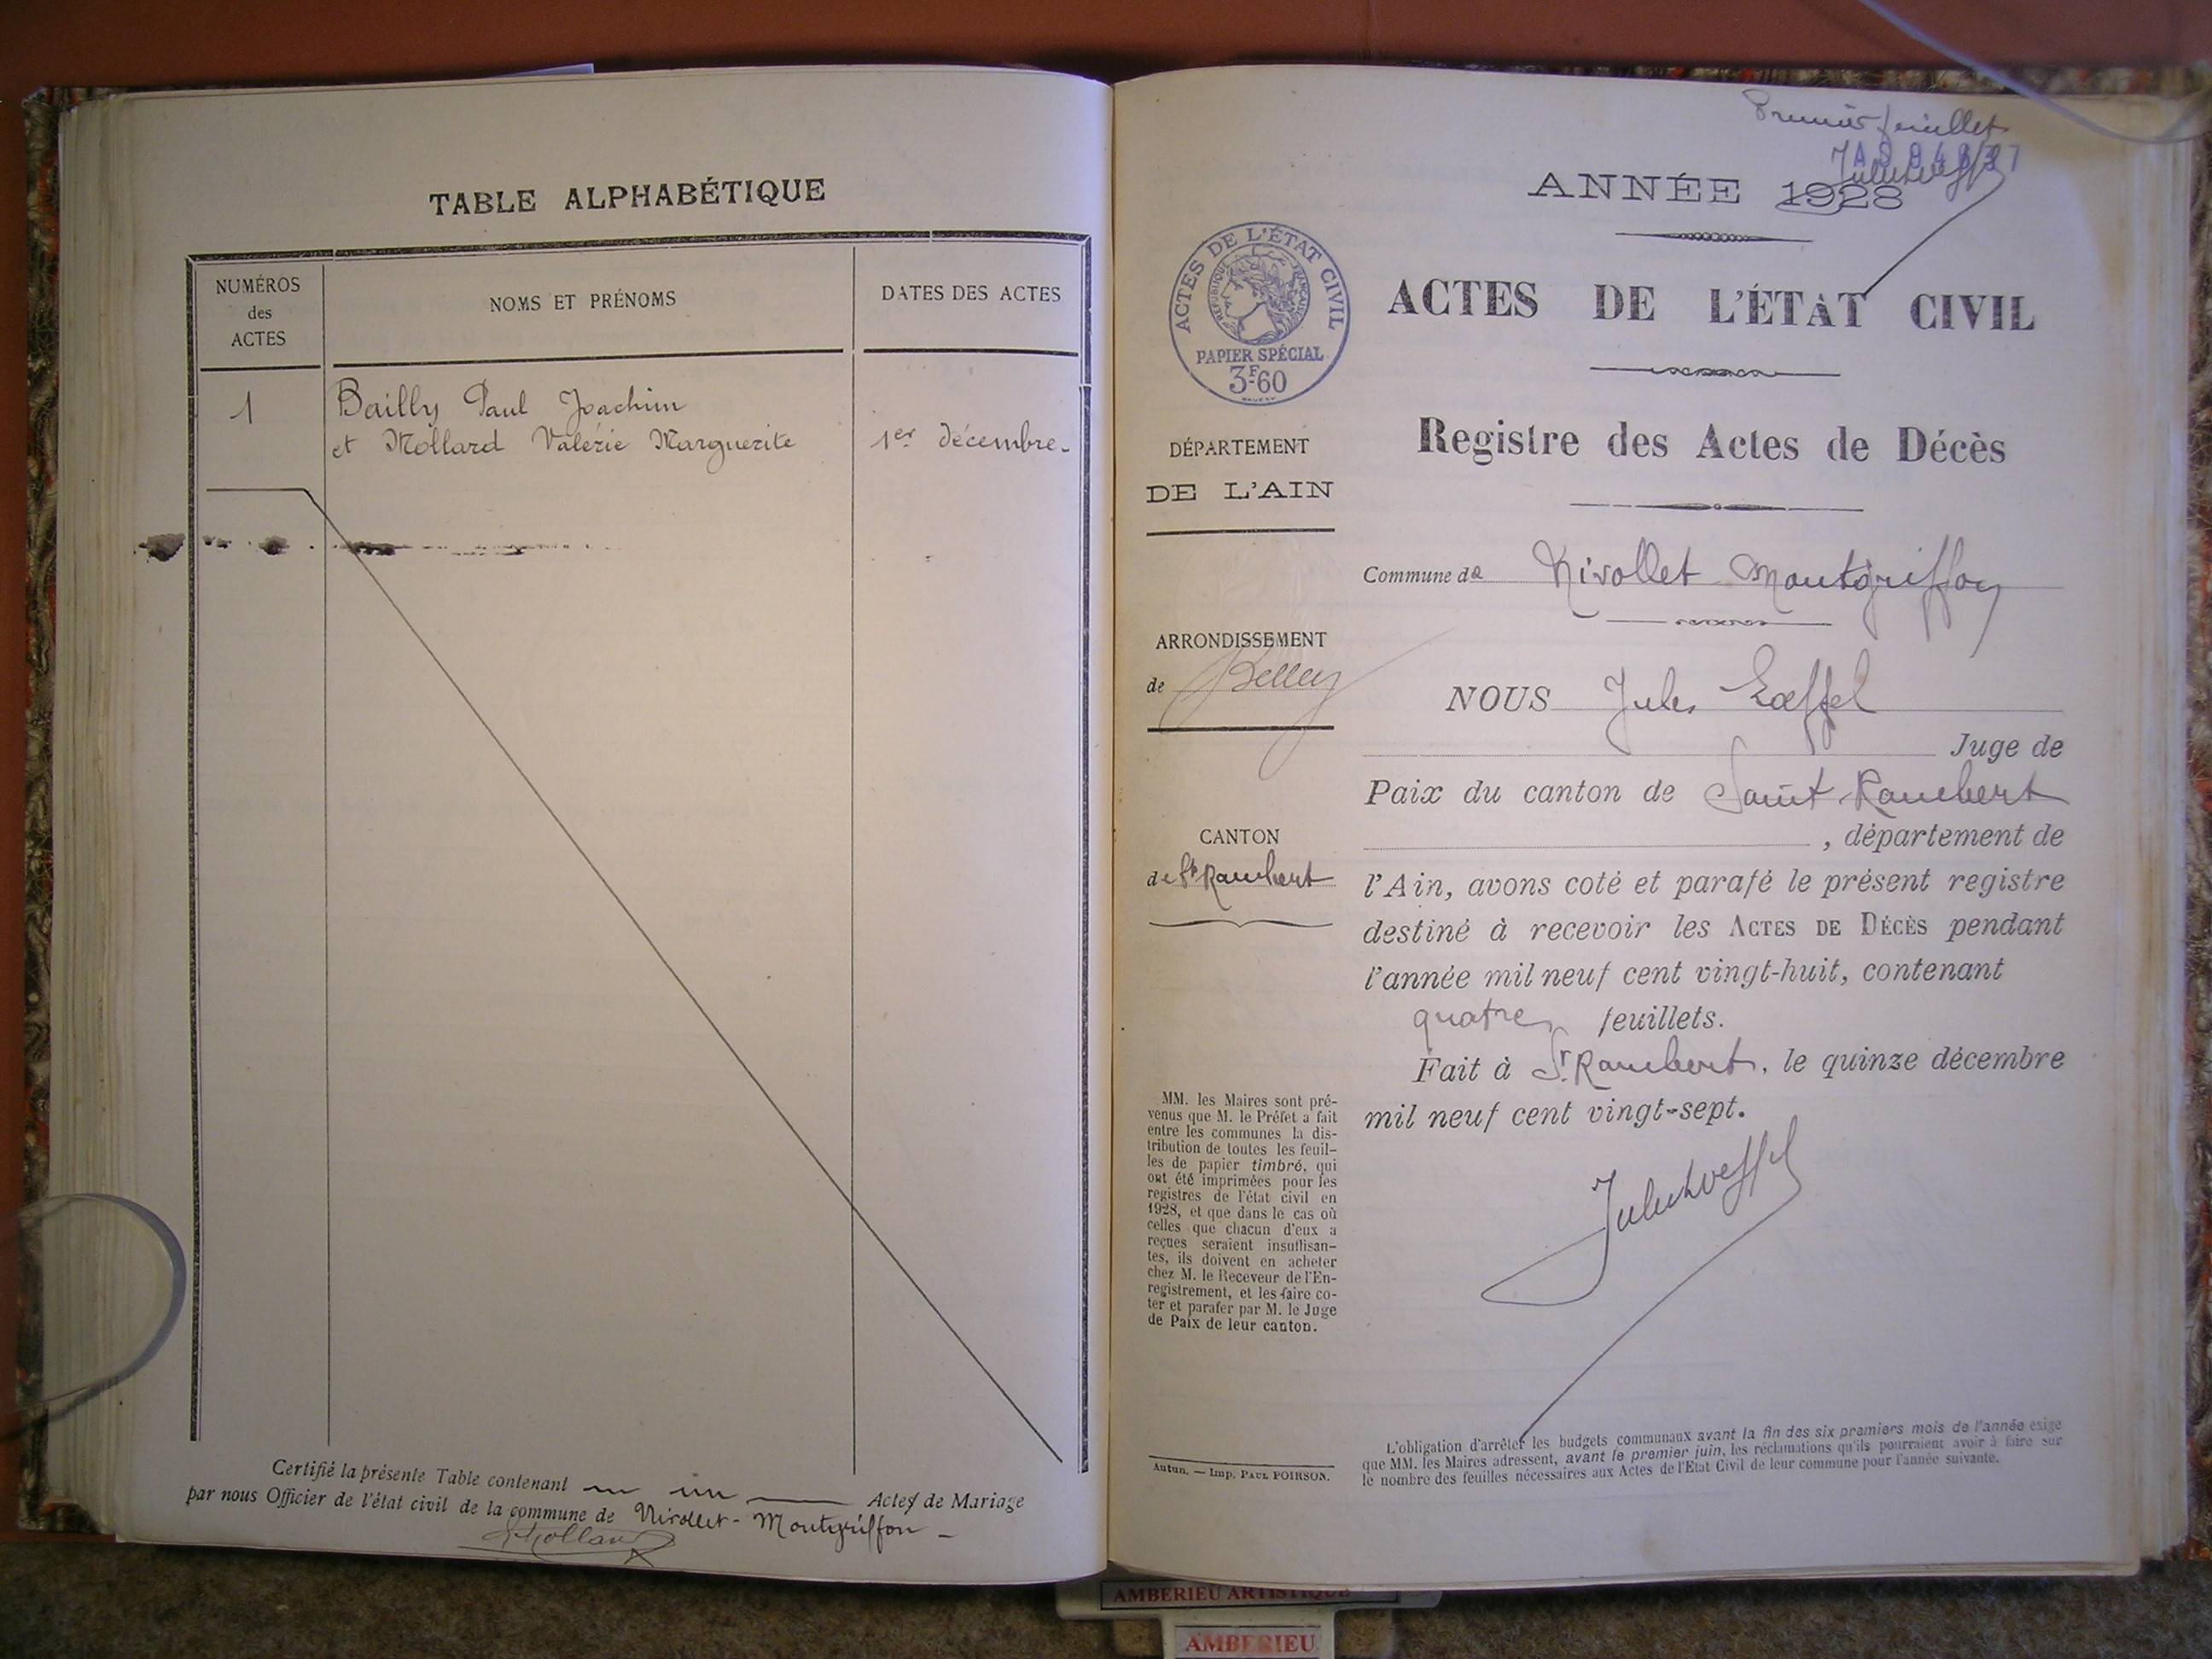 TABLE ALPHABÉTIQUE
NUMÉROS
des
ACTES
NOMS ET PRÉNOMS
DATES DES ACTES
1
Bailly Paul Joachim
et Mollard Valérie Marguerite
1er décembre.
Certifié la présente Table contenant un Actes de Mariage
par nous Officier de l'état civil de la commune de Nivollet-Montgriffon
Mollard
Premier feuillet
ANNÉE 1928
ACTES DE L'ÉTAT CIVIL
RÉPUBLIQUE FRANÇAISE
PAPIER SPÉCIAL
3F60
ACTES DE L'ÉTAT CIVIL
Registre des Actes de Décès
DÉPARTEMENT
DE L'AIN
Commune de Nivollet Montgriffon
ARRONDISSEMENT
de Belley
NOUS Jules Loeffel
Juge de
Paix du canton de Saint Rambert
, département de
CANTON
de St Rambert
l'Ain, avons coté et parafé le présent registre
destiné à recevoir les ACTES DE DÉCÈS pendant
l'année mil neuf cent vingt-huit, contenant
quatre feuillets.
Fait à St Rambert, le quinze décembre
mil neuf cent vingt-sept.
Jules Loeffel
MM. les Maires sont pré-
venus que M. le Préfet a fait
entre les communes la dis-
tribution de toutes les feuil-
les de papier timbré, qui
ont été imprimées pour les
registres de l'état civil en
1928, et que dans le cas où
celles que chacun d'eux a
reçues seraient insuffisan-
tes, ils doivent en acheter
chez M. le Receveur de l'En-
registrement, et les faire co-
ter et parafer par M. le Juge
de Paix de leur canton.
Autun. — Imp. PAUL POIRSON.
L'obligation d'arrêter les budgets communaux avant la fin des six premiers mois de l'année exige
que MM. les Maires adressent, avant le premier juin, les réclamations qu'ils pourraient avoir à faire sur
le nombre des feuilles nécessaires aux Actes de l'Etat Civil de leur commune pour l'année suivante.
AMBERIEU ARTISTIQUE
AMBERIEU